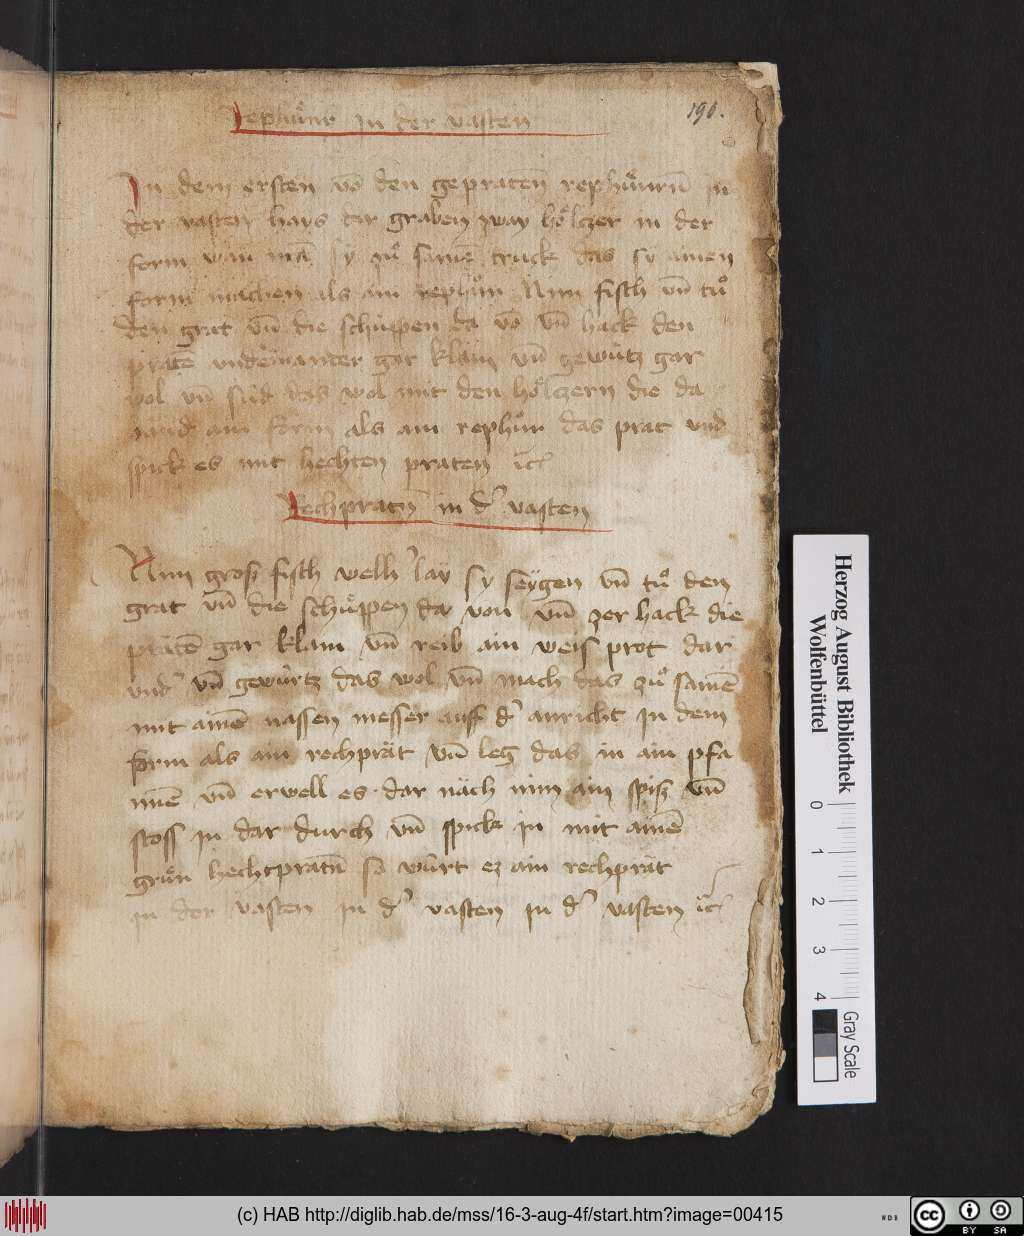 190.
rephuͦnr in der vasten
In dem ersten vō den gepratenn̄ rephuͦnrn̄ in
der vasten hays dir graben zway hoͤlczer in der
form wan mā sy zuͦ samē truck das sy ainen
form machen als ain rephuͦn Nim fisch vn̄ tuͦ
den grat vn̄ die schuͤppen da vō vn̄ hack den
pratē vndereinander gar klain vn̄ gewurtz gar
wol vn̄ sud das wol mit den hoͤlczern die da
sind ain form als ain rephuͦn das prat vnd
spick es mit hechten praten ꝛc
Rechpratn̄ in d' vasten
Nim gross fisch welh' lay sy seygen vn̄ tuͦ den
grat vn̄ die schuͤppen da von vn̄ zer hack die
prätē gar klain vn̄ reib ain weis prot dar
vnd' vn̄ gewurtz das wol vn̄ mach das zuͦ samē
mit ainē nassen messer auff d' anricht in dem
form als ain rechprät vn̄ leg das in ain pfa
nnē vn̄ erwell es dar näch nim ain spiss vn̄
stoss in dar durch vn̄ spick in mit ainē
gruͤn hechtpratn̄ so wurt ez ain rechprät
in der vasten in d' vasten in d' vasten ꝛc
Herzog August Bibliothek
Wolfenbüttel
0 1 2 3 4
Gray Scale
(c) HAB http://diglib.hab.de/mss/16-3-aug-4f/start.htm?image=00415
WDB
cc BY SA